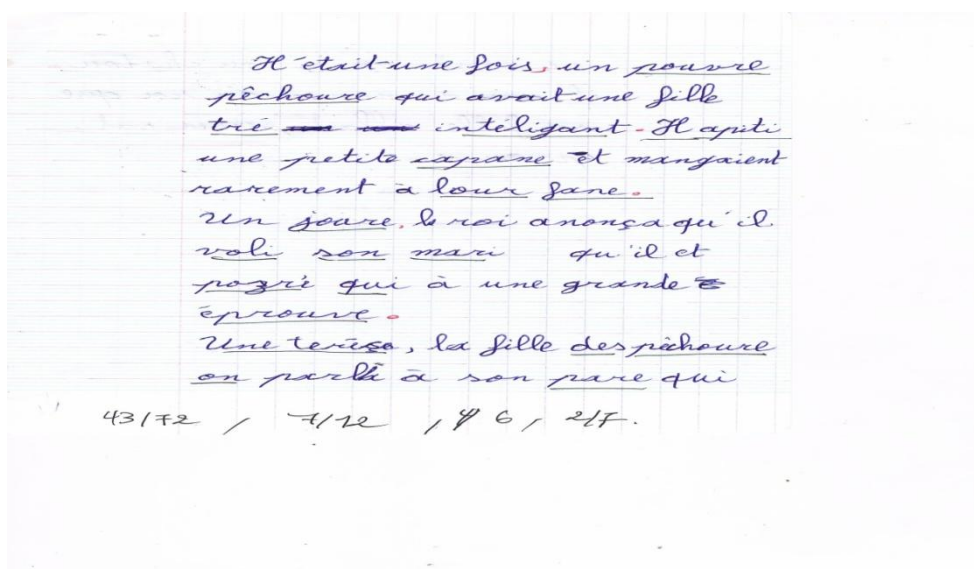 Il était une fois, un pouvre
pêchoure qui avait une fille
tré intéligant. Il apiti
une petite capane et mangaient
rarement à lour fane.
Un joure, le roi anonça qu'il
voli son mari qu'il et
pozré qui à une grande
éprouve.
Une terése, la fille des pàhoure
on parlé à son pare qui
43/72 / 7/12 , 6 , 2/7.